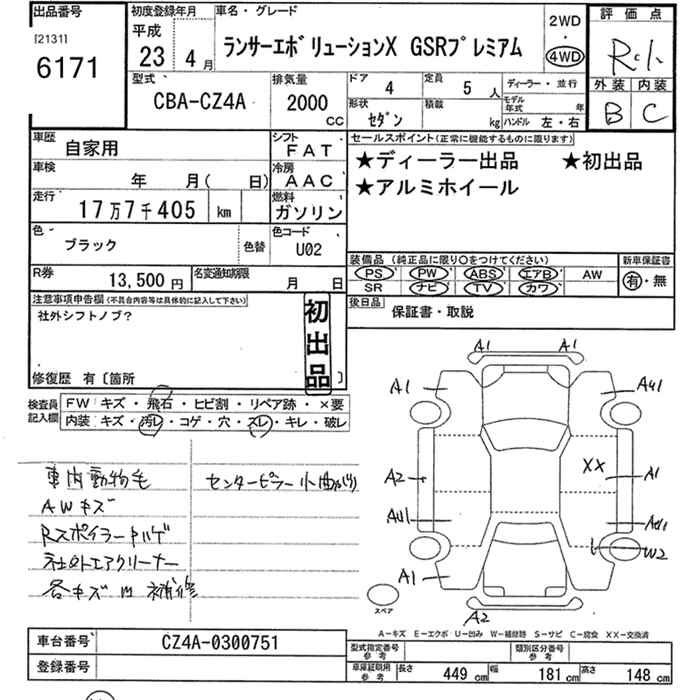 出品番号 初度登録年月 車名・グレード 2WD 評価点
[2131] 平成 ・
6171 23年 4月 ランサーエボリューションX GSRプレミアム 4WD
型式 排気量 ドア 定員 ディーラー・並行 外装 内装
CBA-CZ4A 2000cc 4 5人 モデル年式 年 B C
形状 積載
セダン kg ハンドル 左・右
車歴 シフト セールスポイント(正常に機能するものに限ります)
自家用 FAT ★ディーラー出品 ★初出品
車検 冷房 ★アルミホイール
年 月( 日) AAC
走行 燃料
17万7千405 km ガソリン
色 色替 色コード
ブラック U02
装備品(純正品に限り○をつけてください) 新車保証書
PS PW ABS エアB AW 有・無
SR ナビ TV カワ
R券 名変通知期限
13,500円 月 日
後日品
保証書・取説
注意事項申告欄(不具合内容等は具体的に記入して下さい)
社外シフトノブ?
初出品
修復歴 有〔箇所 〕
検査員記入欄
FW キズ・飛石・ヒビ割・リペア跡・×要
内装 キズ・汚レ・コゲ・穴・スレ・キレ・破レ
車内動物毛 センターピラー小曲がり
AWキズ
Rスポイラー
社外エアクリーナー
各キズ凹補修
A1 A1
A1 AU1
A2 XX A1
AU1 AU1
W2
A1
A2
スペア
A-キズ E-エクボ U-凹み W-補修跡 S-サビ C-腐食 XX-交換済
車台番号 CZ4A-0300751
登録番号
型式指定番号 参考 類別区分番号 参考
車庫証明用 参考 長さ 449cm 幅 181cm 高さ 148cm